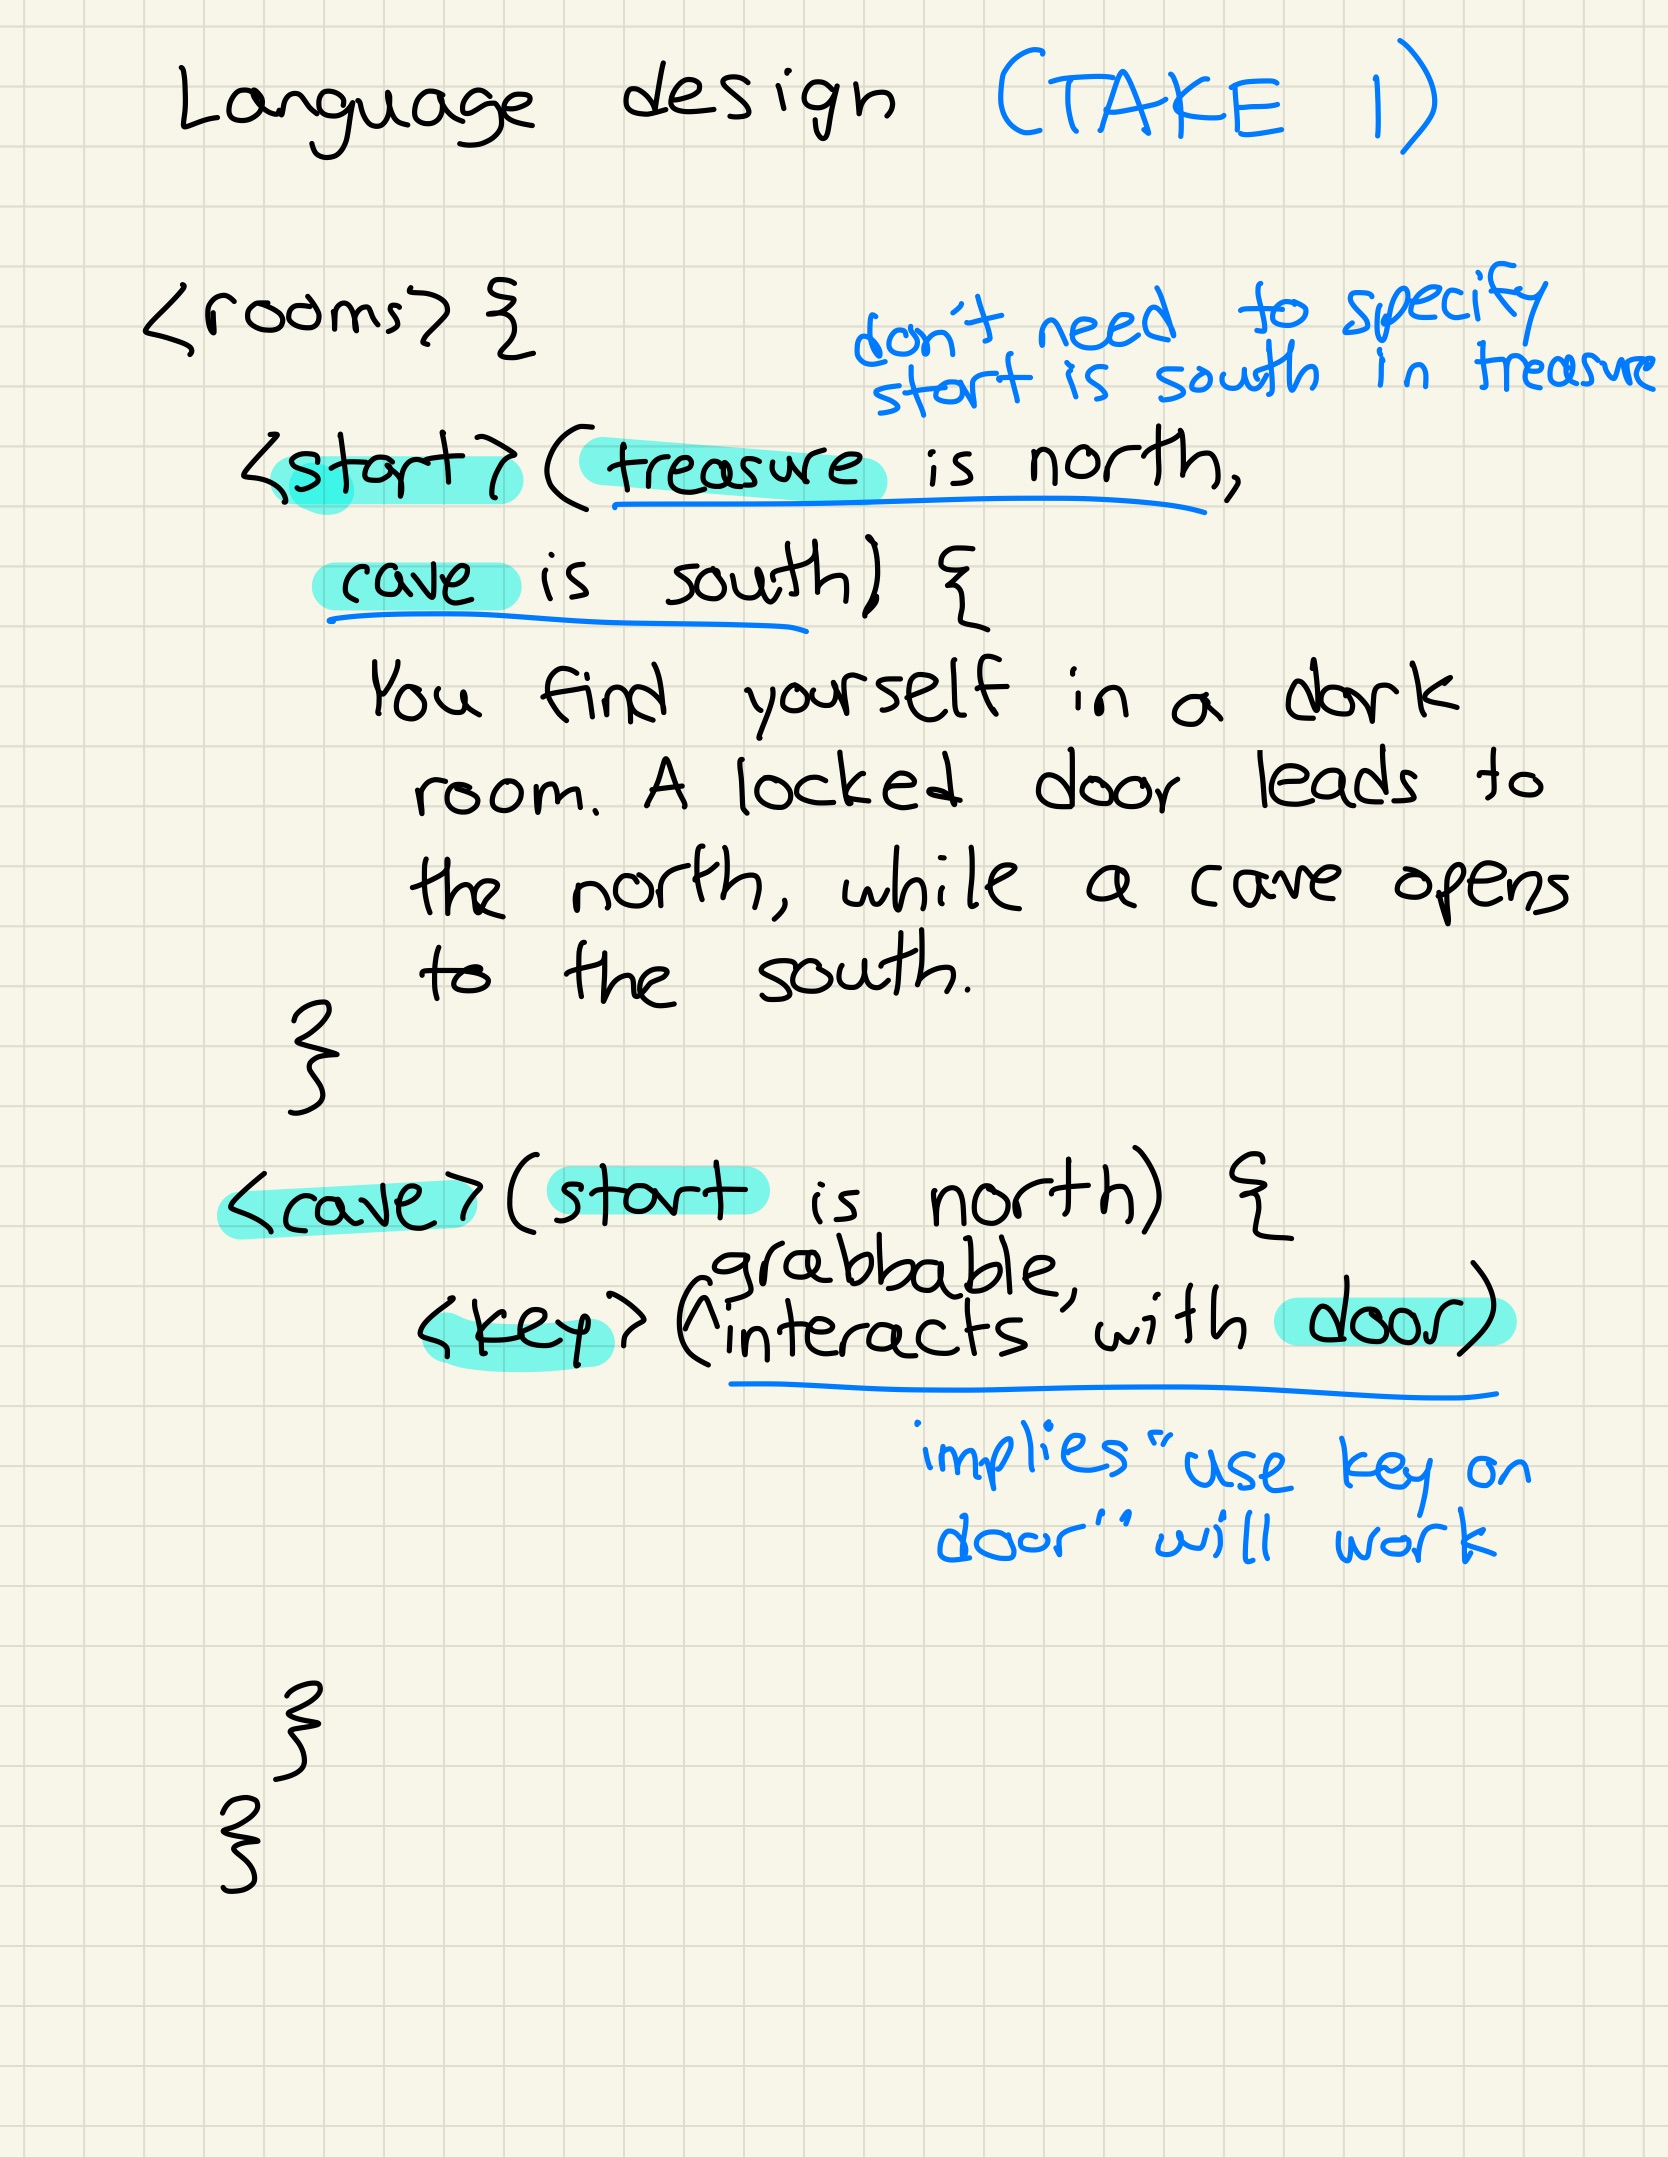 Language design (TAKE 1)
<rooms> {
don't need to specify
start is south in treasure
<start> (treasure is north,
cave is south) {
You find yourself in a dark
room. A locked door leads to
the north, while a cave opens
to the south.
}
<cave> (start is north) {
grabbable,
<key> (^interacts with door)
implies "use key on
door" will work
}
}